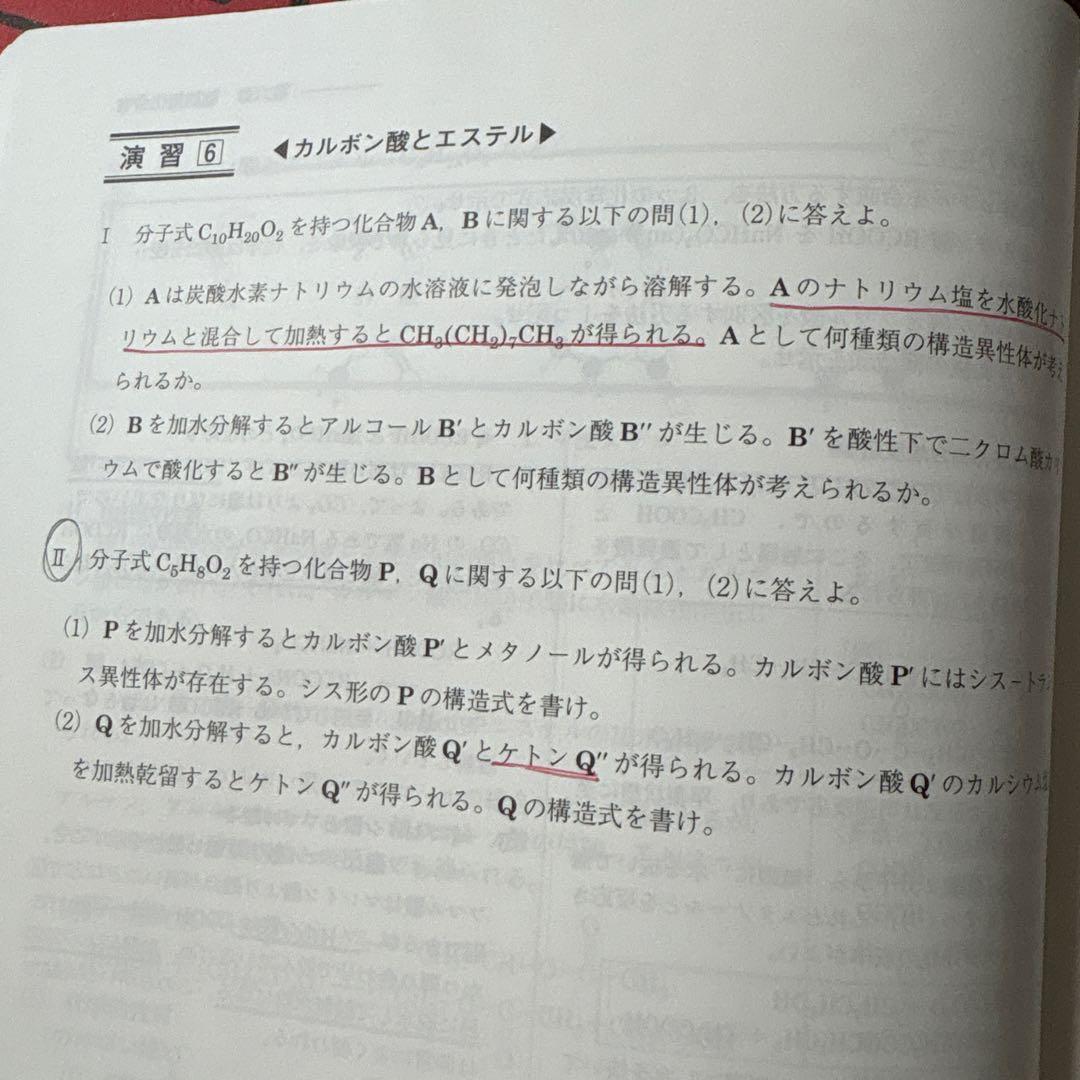 演習 6 ◀カルボン酸とエステル▶
I 分子式C₁₀H₂₀O₂を持つ化合物A,Bに関する以下の問(1),(2)に答えよ。
(1) Aは炭酸水素ナトリウムの水溶液に発泡しながら溶解する。Aのナトリウム塩を水酸化ナト
リウムと混合して加熱するとCH₃(CH₂)₇CH₃が得られる。Aとして何種類の構造異性体が考え
られるか。
(2) Bを加水分解するとアルコールB′とカルボン酸B″が生じる。B′を酸性下で二クロム酸カリ
ウムで酸化するとB″が生じる。Bとして何種類の構造異性体が考えられるか。
II 分子式C₅H₈O₂を持つ化合物P,Qに関する以下の問(1),(2)に答えよ。
(1) Pを加水分解するとカルボン酸P′とメタノールが得られる。カルボン酸P′にはシス-トラン
ス異性体が存在する。シス形のPの構造式を書け。
(2) Qを加水分解すると,カルボン酸Q′とケトンQ″が得られる。カルボン酸Q′のカルシウム
を加熱乾留するとケトンQ″が得られる。Qの構造式を書け。